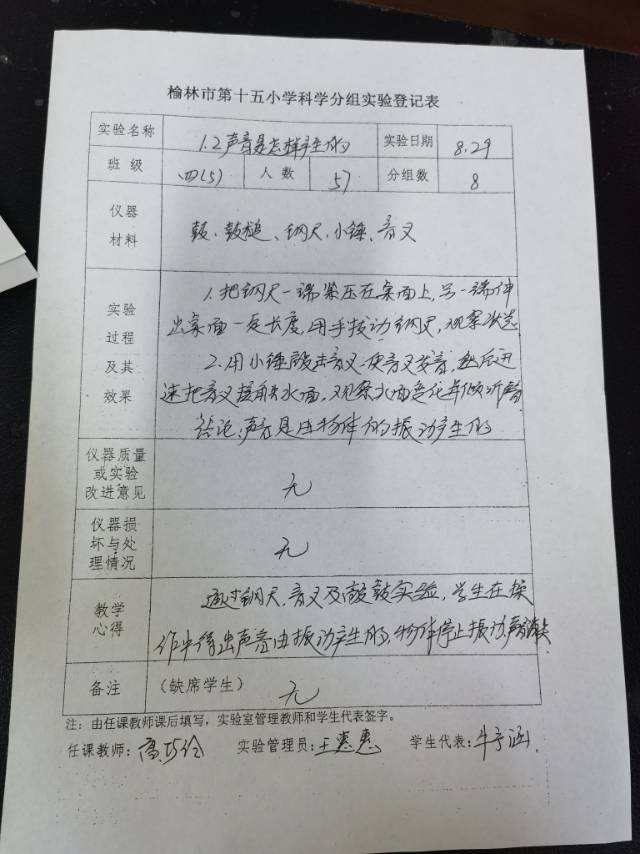 榆林市第十五小学科学分组实验登记表
实验名称 1.2声音是怎样产生的 实验日期 8.29
班 级 四(5) 人 数 57 分组数 8
仪器材料 鼓、鼓槌、钢尺、小锤、音叉
实验过程及其效果
1.把钢尺一端紧压在桌面上,另一端伸
出桌面一定长度,用手拨动钢尺,观察状态
2.用小锤敲击音叉使音叉发音,然后迅
速把音叉轻触水面,观察水面变化并倾听声音
结论:声音是由物体的振动产生的
仪器质量或实验改进意见 无
仪器损坏与处理情况 无
教学心得
通过钢尺、音叉及敲鼓实验,学生在操
作中得出声音由振动产生的,物体停止振动,声音消失
备注 (缺席学生) 无
注:由任课教师课后填写,实验室管理教师和学生代表签字。
任课教师: 高巧玲 实验管理员:王惠惠 学生代表:牛子涵.